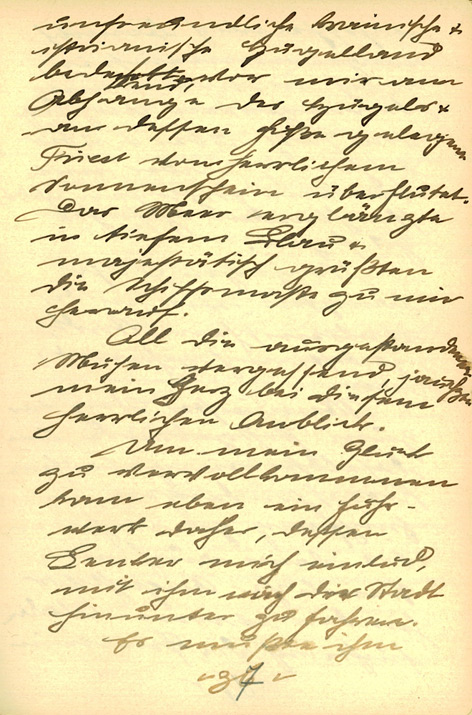 unfreundliche krainische &
istrianische Hügelland
bedeckten, vor mir am
Abhange des Hügels &
an dessen Füße gelegen
Triest von herrlichem
Sonnenschein überflutet.
Das Meer erglänzte
in tiefem Blau &
majestätisch grüßten
die Schiffsmaste zu mir
herauf.
All die ausgestandenen
Mühen vergessend, jauchzte
mein Herz bei diesem
herrlichen Anblick.
Um mein Glück
zu vervollkommnen
kam eben ein Fuhr-
werk daher, dessen
Lenker mich einlud,
mit ihm nach der Stadt
hinunter zu fahren.
Es mußte ihm
7